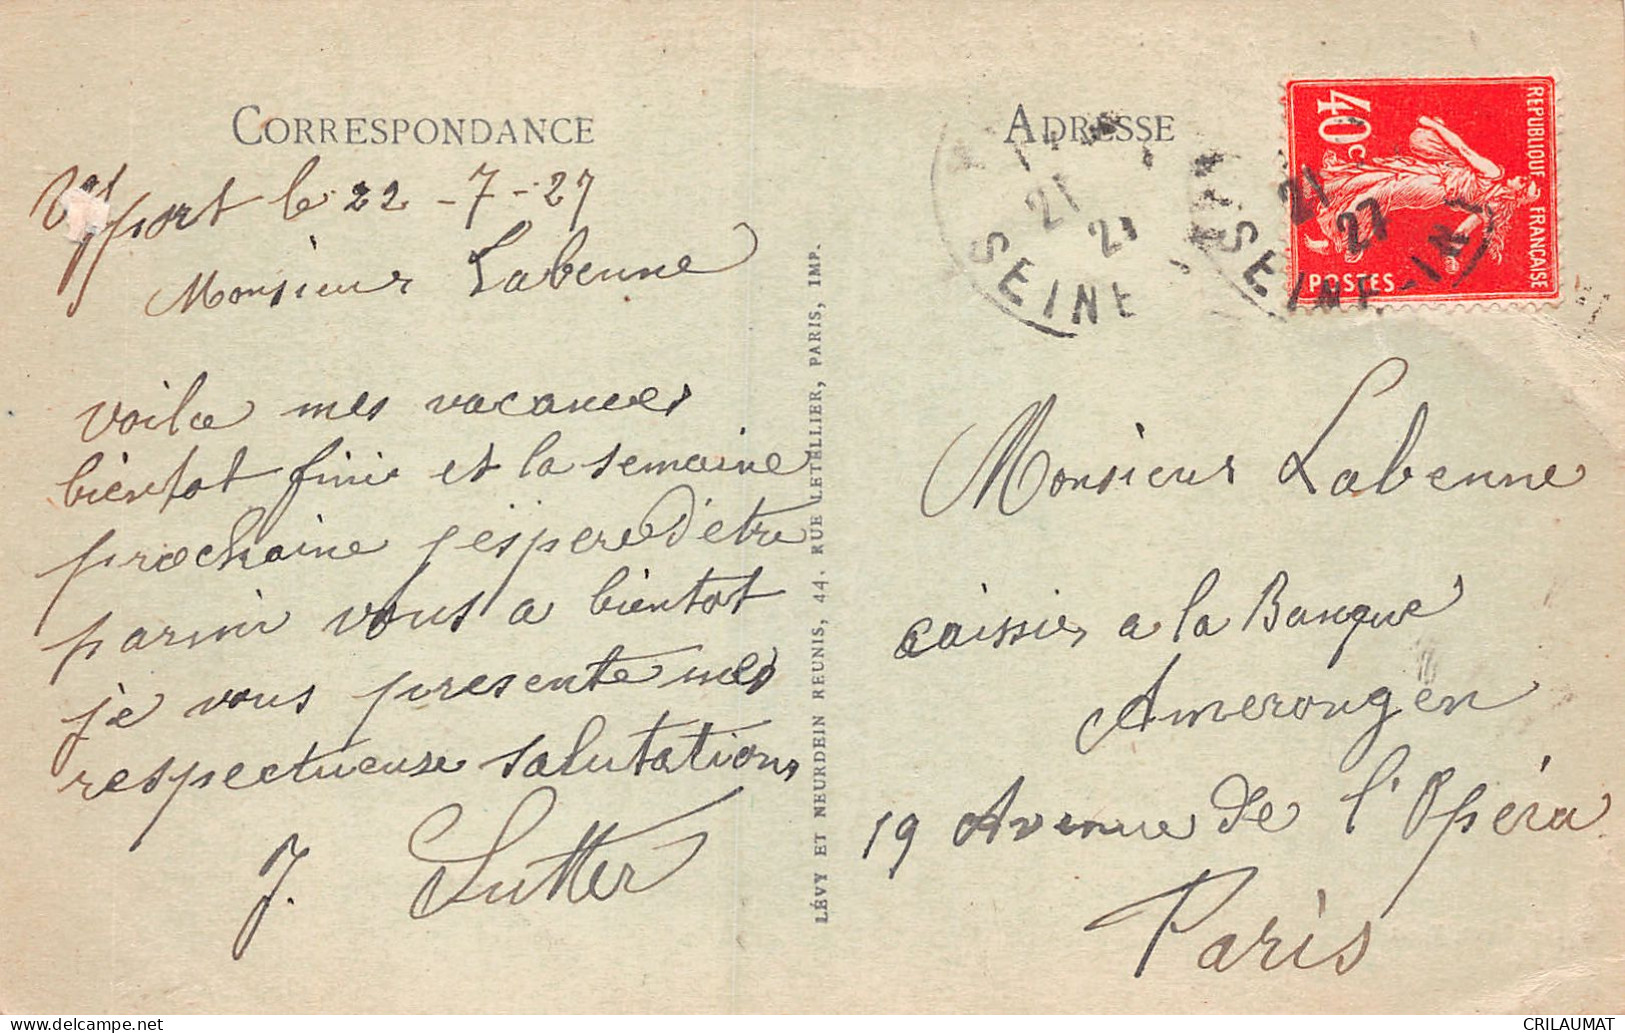 CORRESPONDANCE
le 22 - 7 - 27
Monsieur Labenne
voila mes vacances
bientot finie et la semaine
prochaine j'espere d'etre
parmi vous a bientot
je vous presente mes
respectueuse salutations
J. Sutter
LÉVY ET NEURDEIN REUNIS, 44, RUE LETELLIER, PARIS, IMP.
ADRESSE
REPUBLIQUE FRANÇAISE
40c
POSTES
21
27
SEINE-INF
21
SEINE
Monsieur Labenne
caissier a la Banque
Amerongen
19 Avenue de l'Opéra
Paris
CRILAUMAT